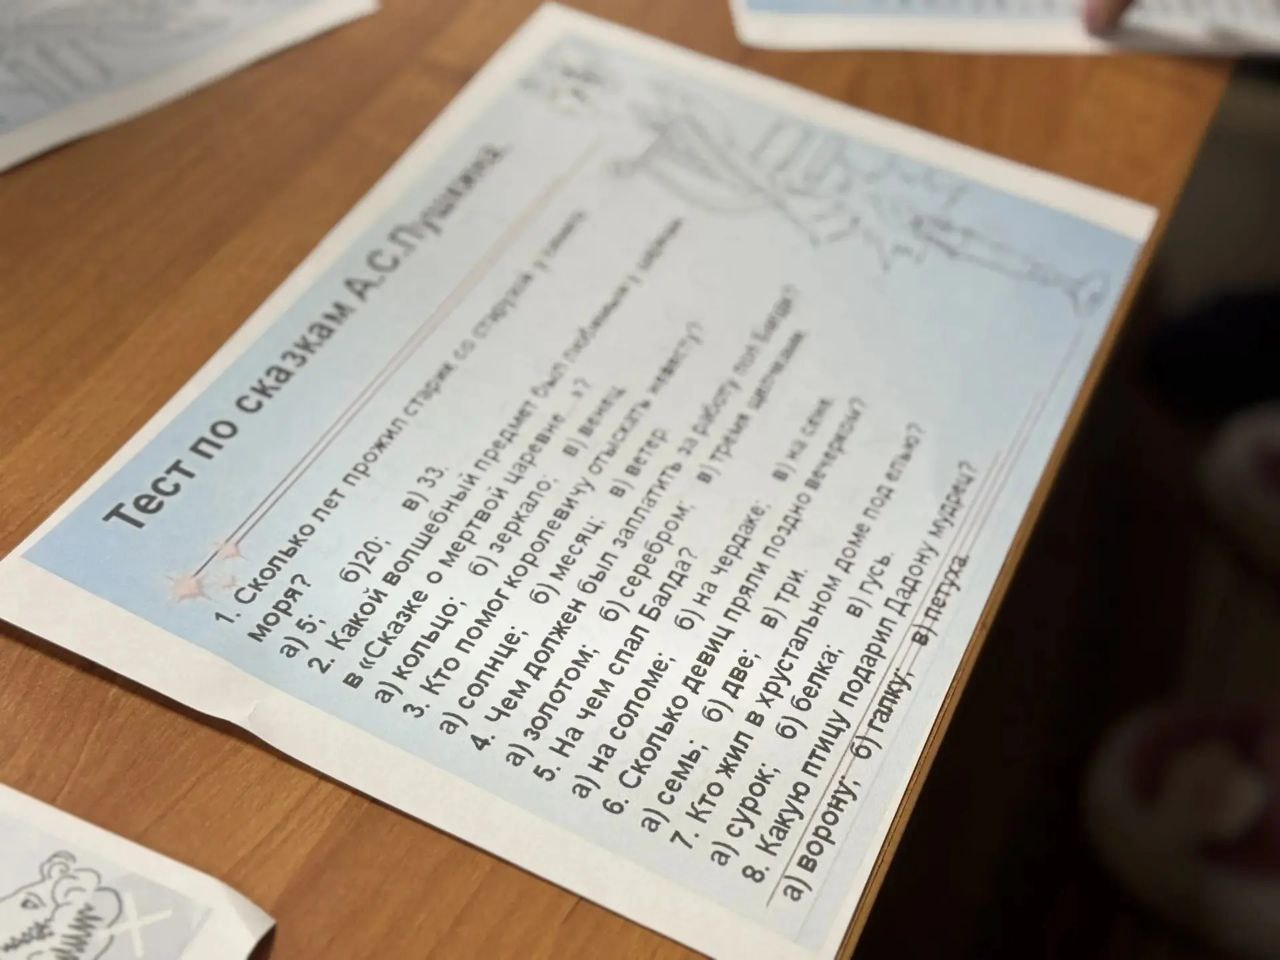 Тест по сказкам А.С.Пушкина.
1. Сколько лет прожил старик со старухой у синего
моря?
а) 5; б)20; в) 33.
2. Какой волшебный предмет был любимым у царицы
в «Сказке о мертвой царевне...»?
а) кольцо; б) зеркало; в) венец.
3. Кто помог королевичу отыскать невесту?
а) солнце; б) месяц; в) ветер.
4. Чем должен был заплатить за работу поп Балде?
а) золотом; б) серебром; в) тремя щелчками.
5. На чем спал Балда?
а) на соломе; б) на чердаке; в) на сене.
6. Сколько девиц пряли поздно вечерком?
а) семь; б) две; в) три.
7. Кто жил в хрустальном доме под елью?
а) сурок; б) белка; в) гусь.
8. Какую птицу подарил Дадону мудрец?
а) ворону; б) галку; в) петуха.